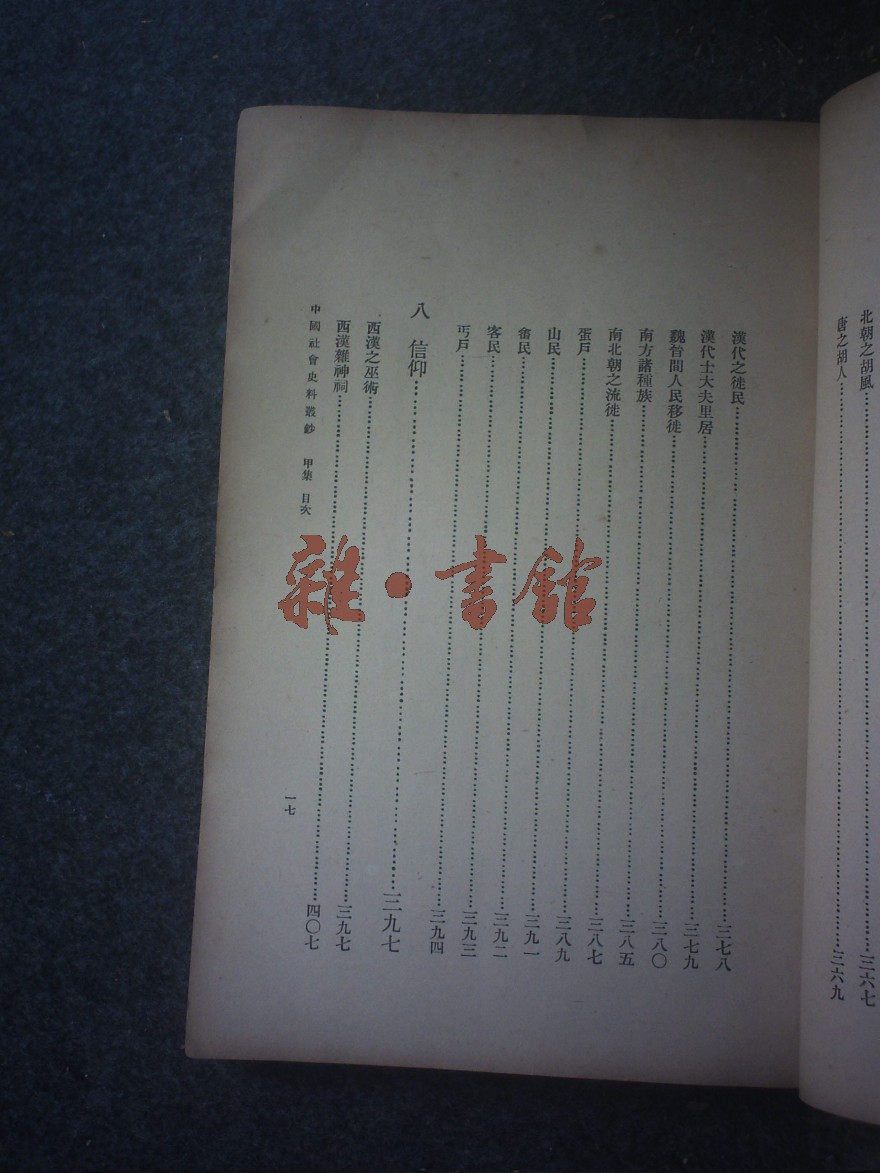 北朝之胡風……三六七
唐之胡人……三六九
漢代之徙民……三七八
漢代士大夫里居……三七九
魏晉間人民移徙……三八〇
南方諸種族……三八五
南北朝之流徙……三八七
蛋戶……三八九
山民……三九一
畬民……三九二
客民……三九三
丐戶……三九四
八 信仰……三九七
西漢之巫術……三九七
西漢雜神祠……四〇七
中國社會史料叢鈔 甲集 目次
一七
雜·書館